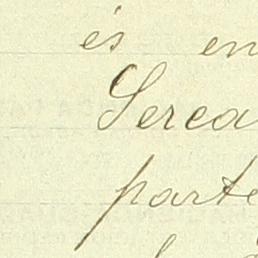 és en
Serca
parte